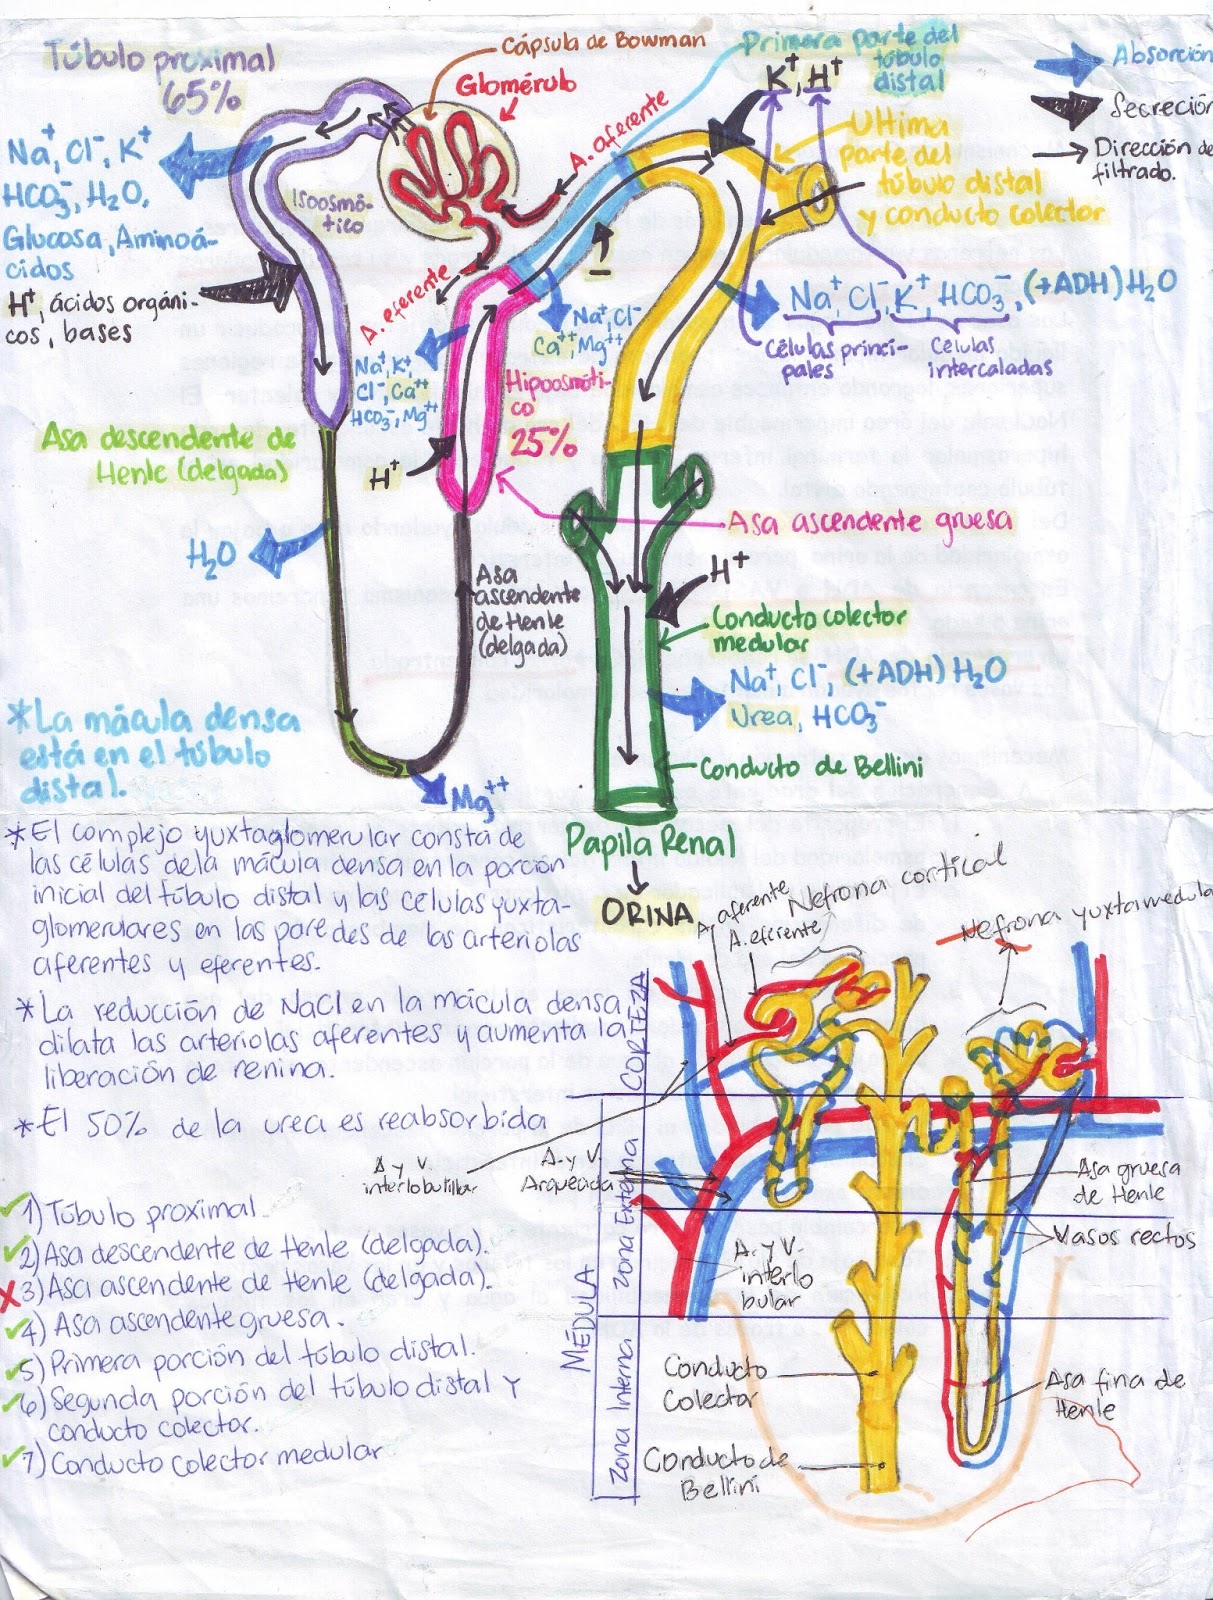 Túbulo proximal
65%
Cápsula de Bowman
Glomérulo
Primera parte del
túbulo
distal
K⁺, H⁺
Absorción
Secreción
Dirección de
filtrado.
A. aferente
Ultima
parte del
túbulo distal
y conducto colector
Na⁺, Cl⁻, K⁺
HCO₃⁻, H₂O,
Glucosa, Aminoá-
cidos
H⁺, ácidos orgáni-
cos, bases
Isoosmó-
tico
A. eferente
1
Na⁺, Cl⁻
Ca⁺⁺, Mg⁺⁺
Na⁺, Cl⁻, K⁺, HCO₃⁻, (+ADH) H₂O
Células princi-
pales
Células
intercaladas
Na⁺, K⁺,
Cl⁻, Ca⁺⁺
HCO₃⁻, Mg⁺⁺
Hipoosmóti-
co
25%
H⁺
Asa descendente de
Henle (delgada)
Asa ascendente gruesa
H₂O
Asa
ascendente
de Henle
(delgada)
H⁺
Conducto colector
medular
Na⁺, Cl⁻, (+ADH) H₂O
Urea, HCO₃⁻
Conducto de Bellini
*La mácula densa
está en el túbulo
distal.
Mg⁺⁺
Papila Renal
ORINA
* El complejo yuxtaglomerular consta de
las células de la mácula densa en la porción
inicial del túbulo distal y las células yuxta-
glomerulares en las paredes de las arteriolas
aferentes y eferentes.
* La reducción de NaCl en la mácula densa
dilata las arteriolas aferentes y aumenta la
liberación de renina.
* El 50% de la urea es reabsorbida
1) Túbulo proximal
2) Asa descendente de Henle (delgada).
3) Asa ascendente de Henle (delgada).
4) Asa ascendente gruesa.
5) Primera porción del túbulo distal.
6) Segunda porción del túbulo distal y
conducto colector.
7) Conducto colector medular
A. aferente
A. eferente
Nefrona cortical
Nefrona yuxtamedula
CORTEZA
MÉDULA
Zona Externa
Zona Interna
A y V.
interlobulillar
A. y V.
Arqueada
A. y V.
interlo
bular
Asa gruesa
de Henle
Vasos rectos
Conducto
Colector
Asa fina de
Henle
Conducto de
Bellini